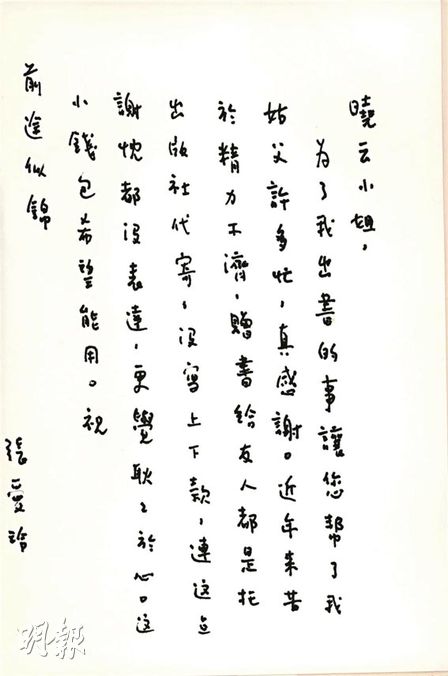 曉云小姐，
为了我出書的事讓您幫了我
姑父許多忙，真感謝。近年来苦
於精力不濟，贈書給友人都是托
出版社代寄，没寫上下款，連这点
謝忱都没表達，更覺耿々於心。这
小錢包希望能用。祝
前途似錦
張愛玲
明報